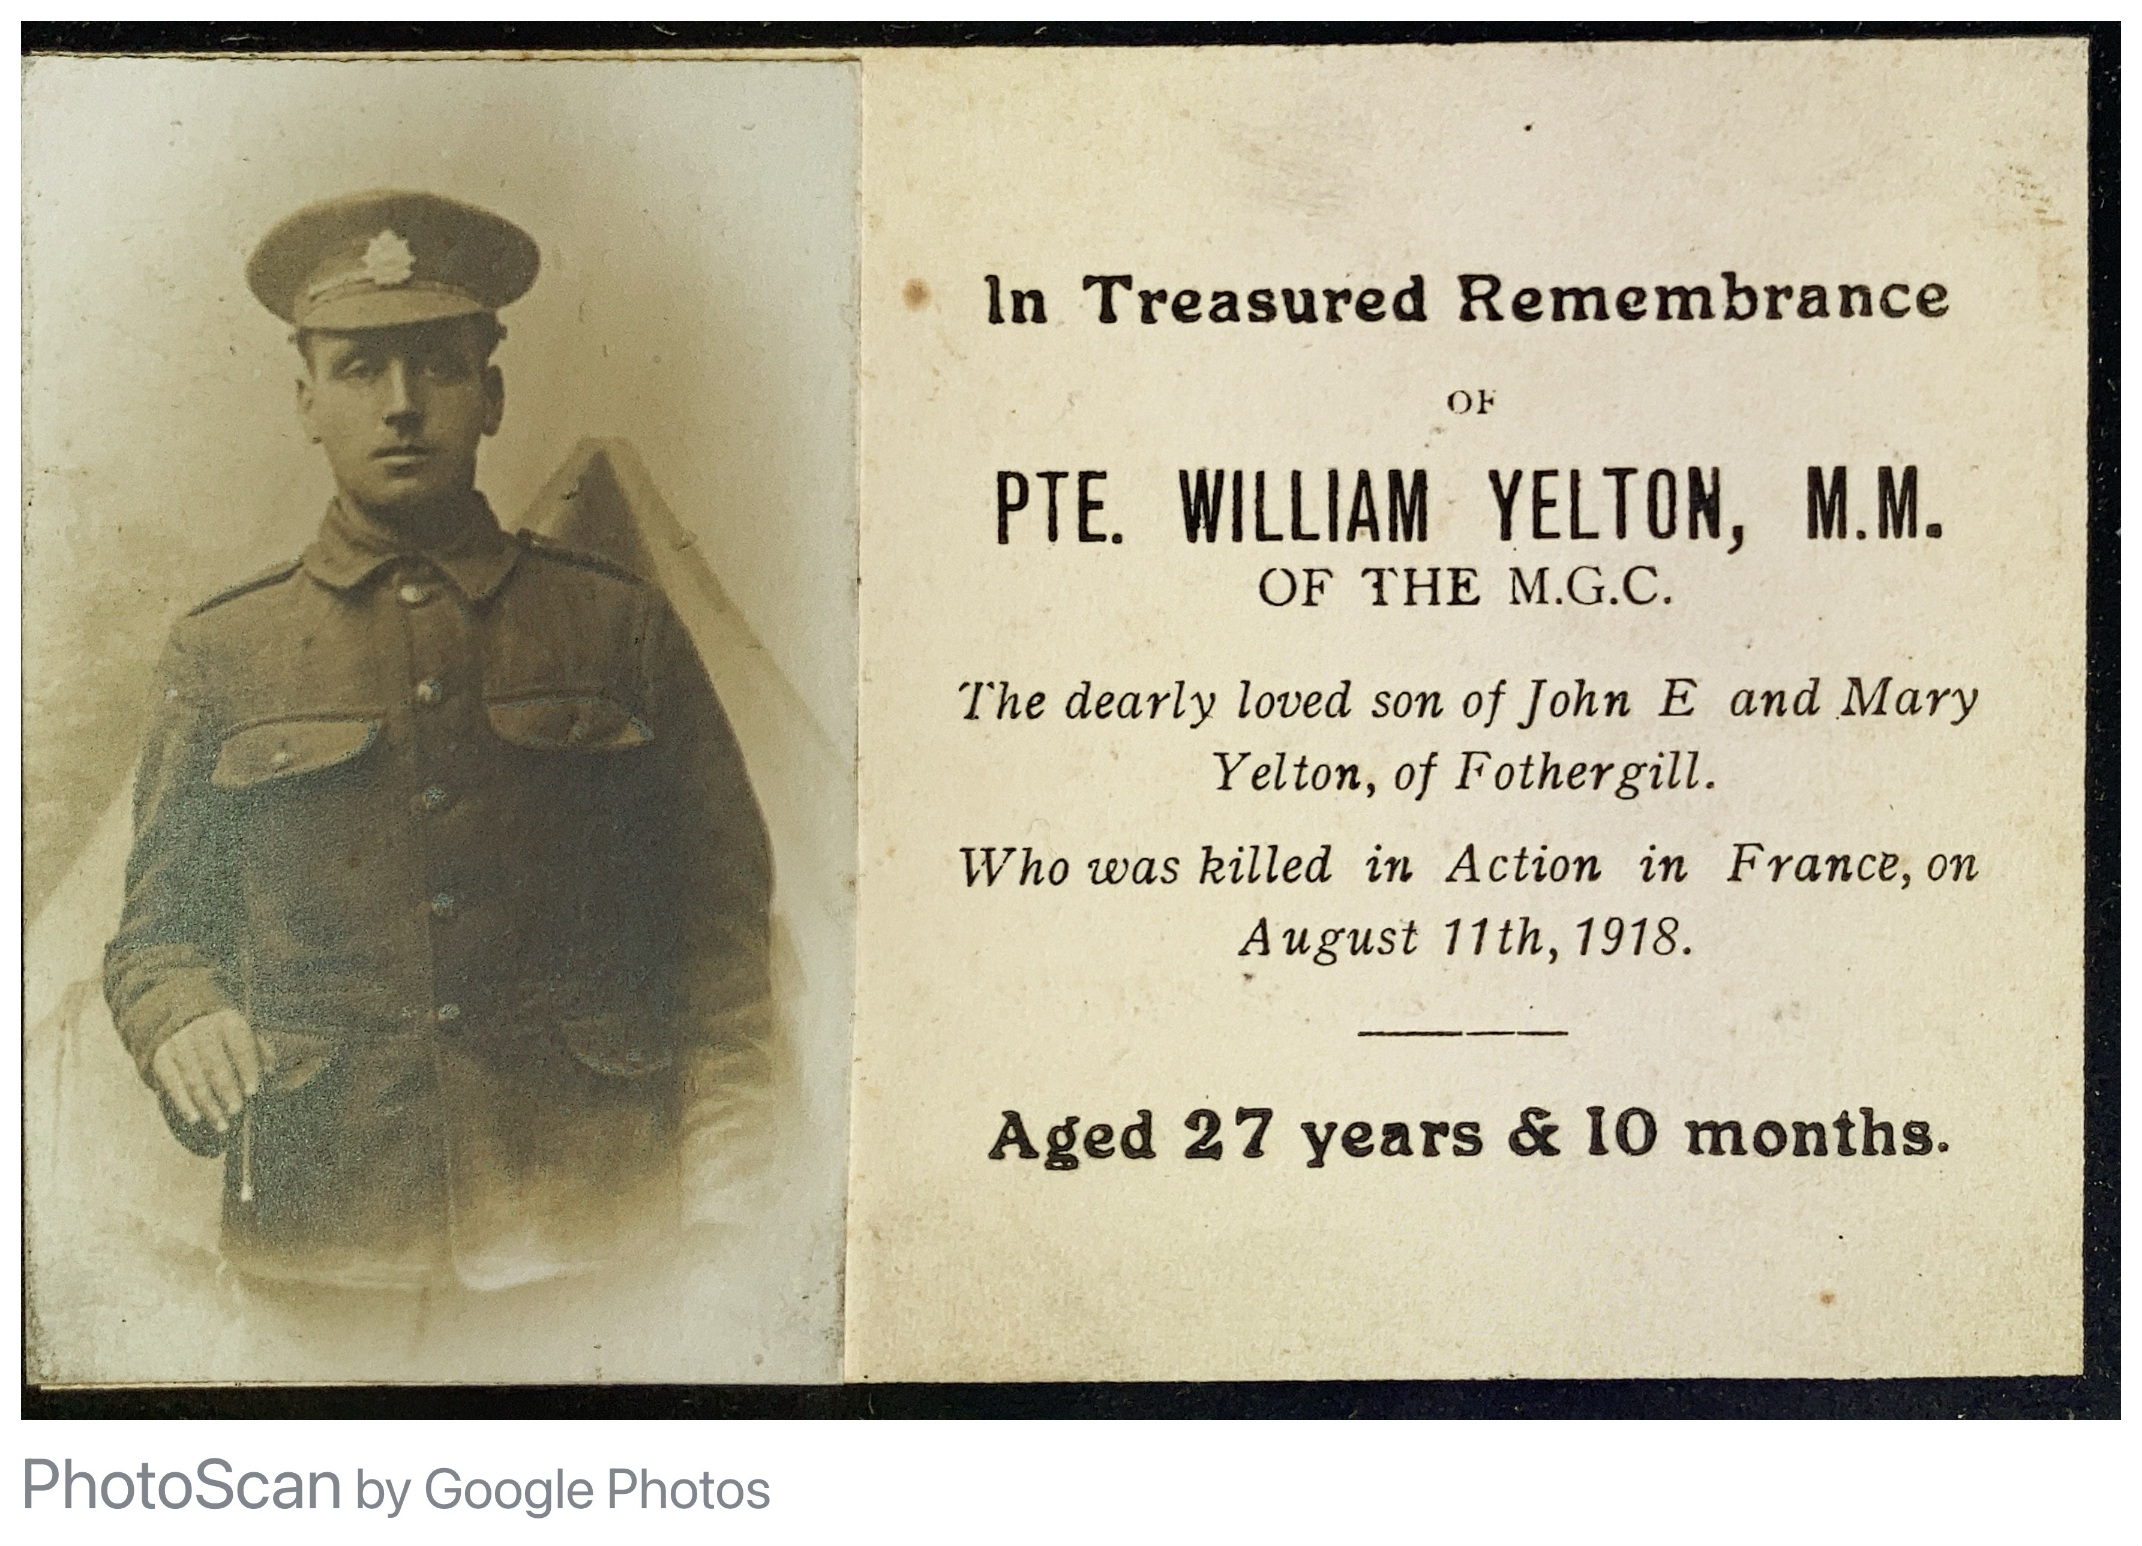 In Treasured Remembrance
OF
PTE. WILLIAM YELTON, M.M.
OF THE M.G.C.
The dearly loved son of John E and Mary
Yelton, of Fothergill.
Who was killed in Action in France, on
August 11th, 1918.
Aged 27 years & 10 months.
PhotoScan by Google Photos